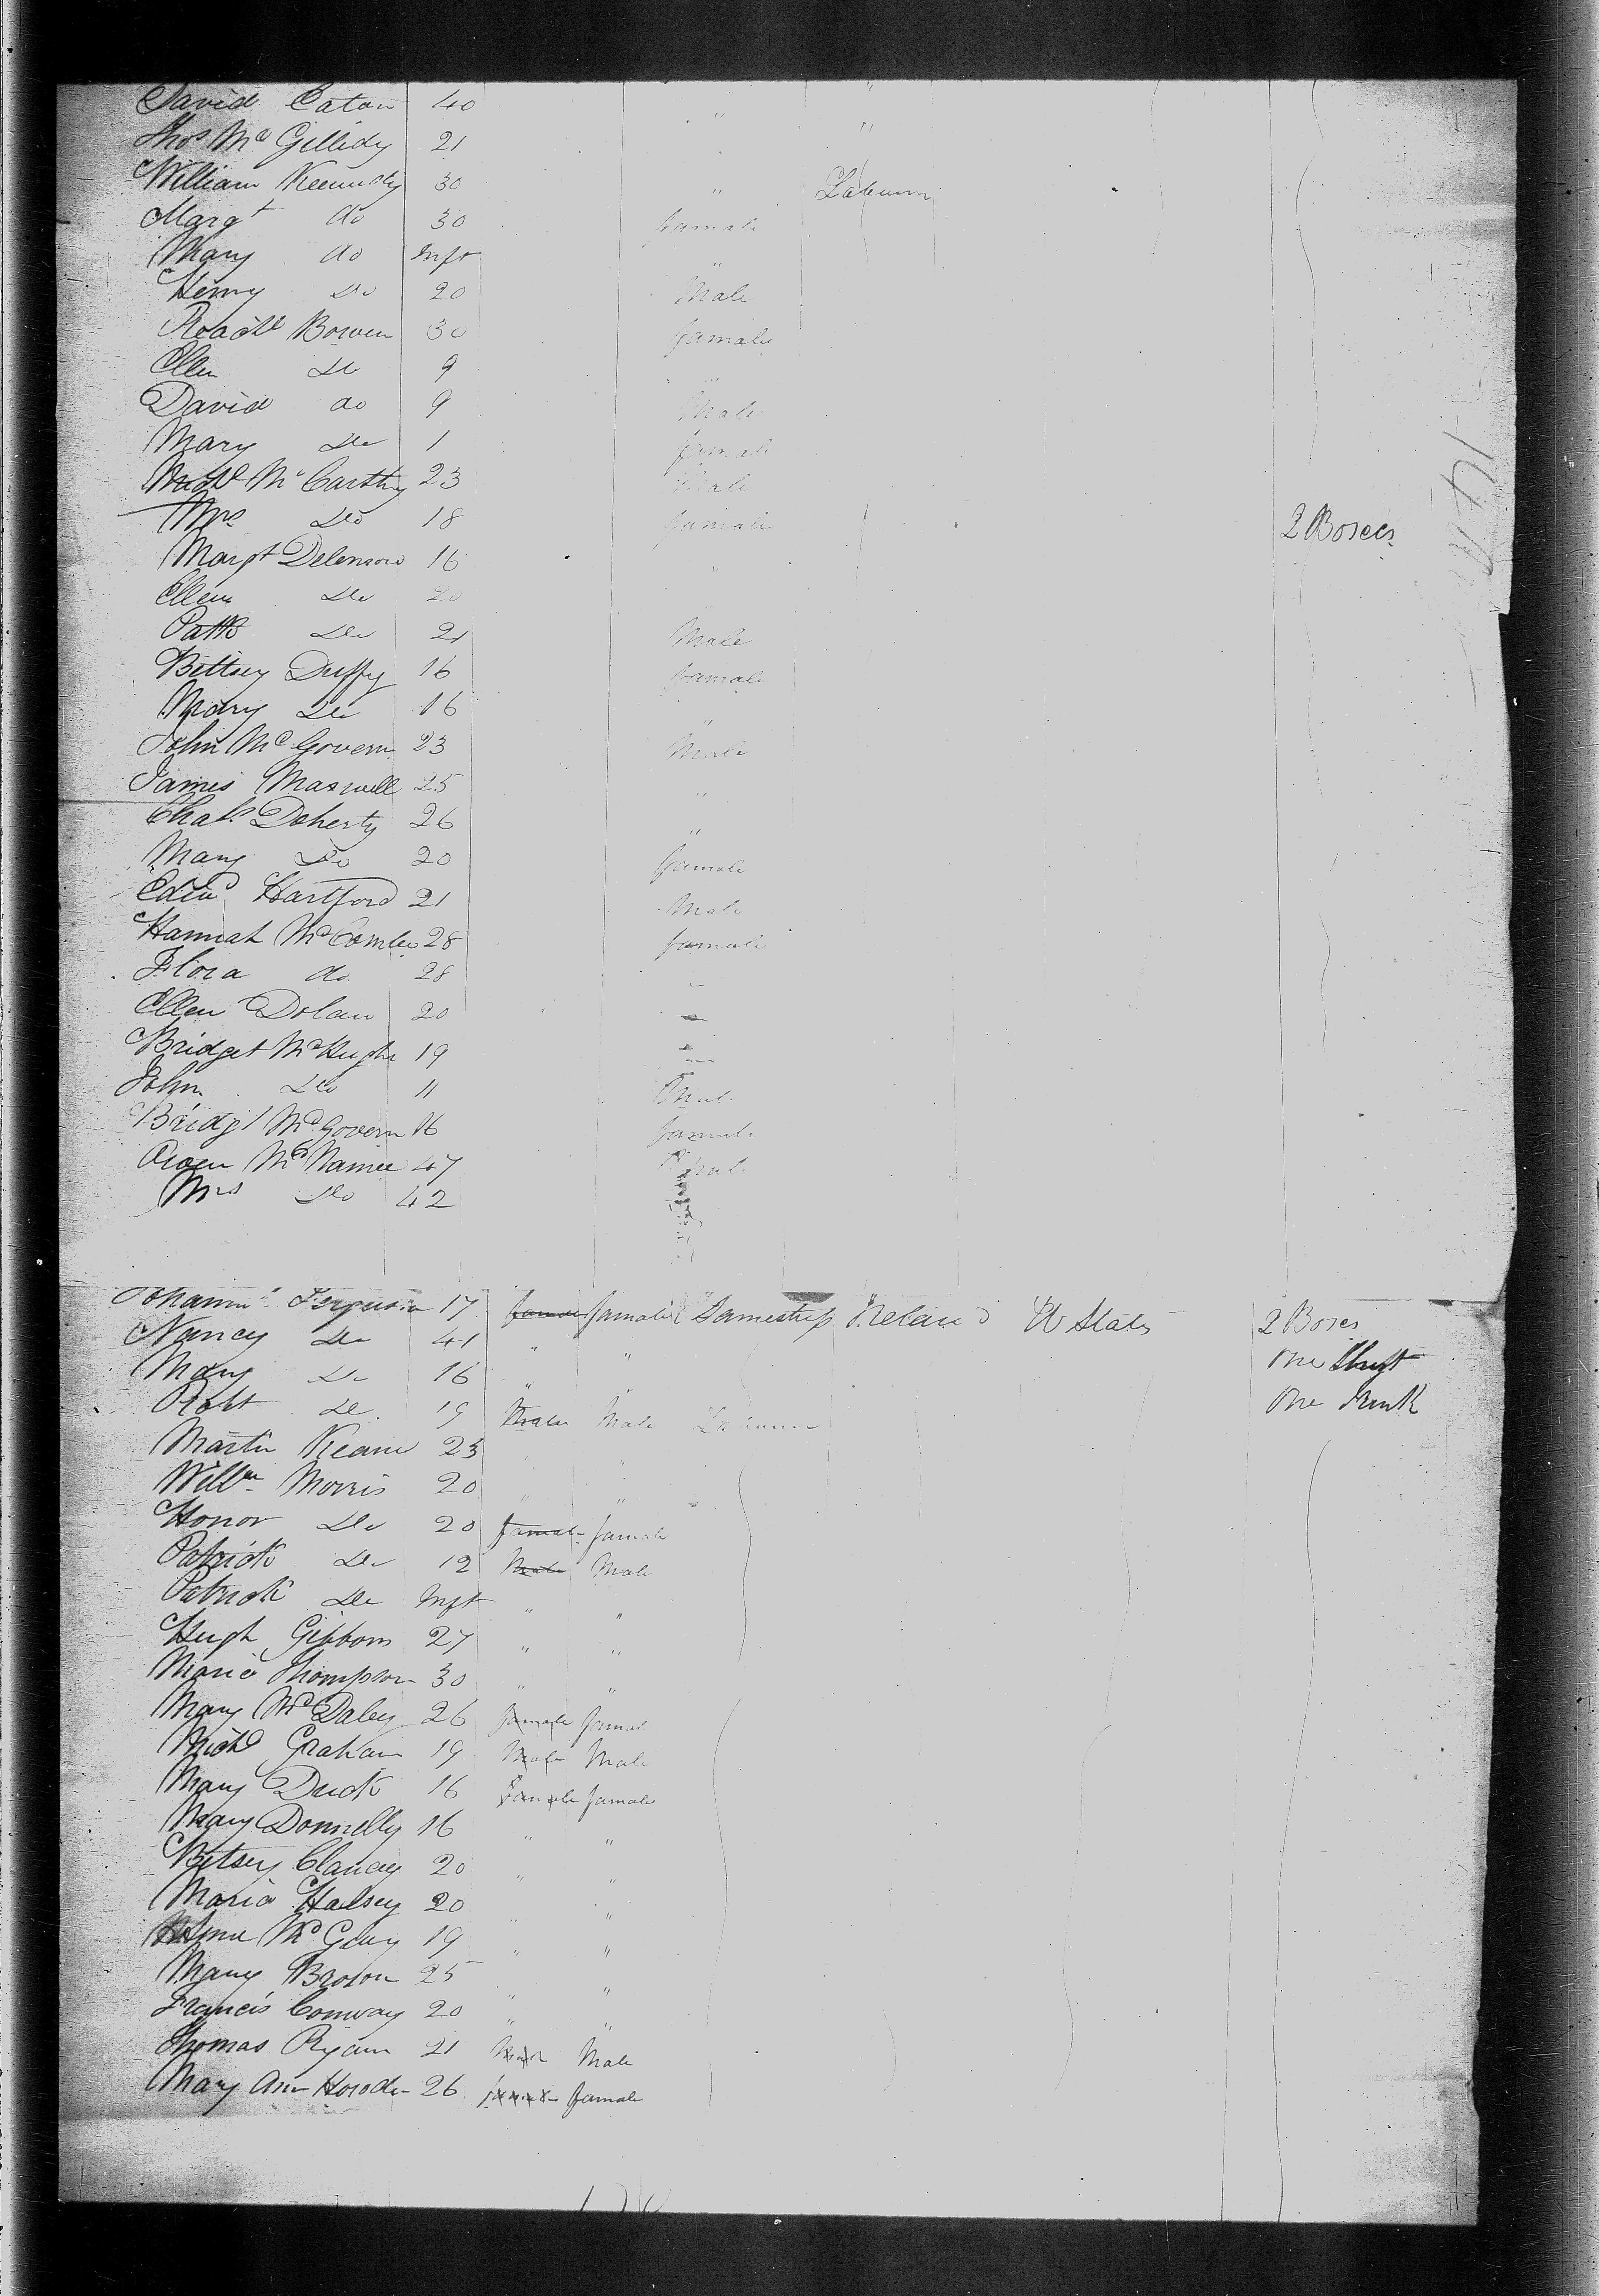 David Eaton 40 "
Thos Mc Gillidy 21 " "
William Kennedy 30 " Labourer
Margt do 30 famale
Mary do Inft "
Henry do 20 Male
Bowen 30 famale
Ellen do 9 "
David do 9 Male
Mary do 1 famale
Michl McCarthy 23 Male
Mrs do 18 famale 2 Boxes
Margt 16 "
Ellen do 20
Patk do 21 Male
Bettsey Duffy 16 famale
Mary do 16 "
John McGovern 23 Male
James Maxwell 25 "
Chals Doherty 26 "
Mary do 20 famale
Edwd Hartford 21 Male
Hannah 28 famale
Flora do 28 "
Ellen Dolan 20 "
Bridget McHugh 19 "
John do 11 Male
Bridgt McGovern 16 famale
Owen McNamee 47 Male
Mrs do 42
Ferguson 17 famale famale Ireland U States 2 Boxes
Nancy do 41 " " One
Mary do 16 " " One Trunk
Robt do 19 Male Male Labourer
Martin Keane 23 "
Willm Morris 20 " "
Honor do 20 famale famale
Patrick do 12 Male Male
Patrick do Inft " "
Hugh Gibbons 27 " "
Maria Thompson 30 " "
Mary McDaley 26 famale famal
Michl Graham 19 Male Male
Mary Duck 16 famale famale
Mary Donnelly 16 " "
Betsey Clancey 20 " "
Maria Halsey 20 " "
19 " "
Mary Brown 25 " "
Francis Conway 20 " "
Thomas Ryan 21 Male Male
Mary Ann 26 famale famale